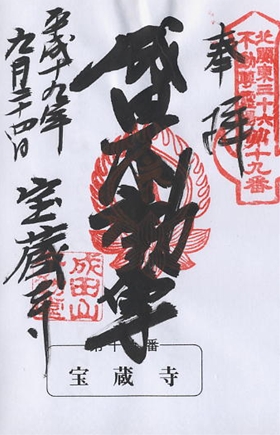 北関東三十六
不動尊霊場
第十九番
奉拝
成田不動尊
平成十九年
九月二十四日
宝蔵寺
成田山
宝蔵寺